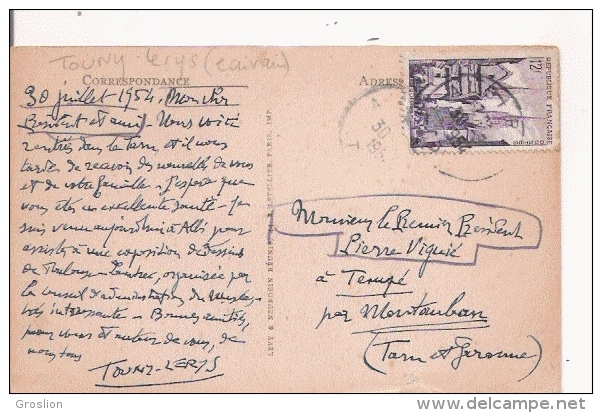 TOUNY Lerys (écrivain)
CORRESPONDANCE
ADRESSE
30 juillet 1954. Mon cher
Président et ami, Nous voilà
rentrés dans le Tarn et il nous
tarde de recevoir des nouvelles de vous
et de votre famille. J'espère que
vous êtes en excellente santé. Je
suis venu aujourd'hui à Albi pour
assister à une exposition de dessins
de Toulouse-Lautrec, organisée par
le conseil d'administration du Musée
très intéressante. Bonnes amitiés,
pour vous et autour de vous, de
nous tous
TOUNY-LERYS
LEVY & NEURDEIN RÉUNIS, LETELLIER, PARIS, IMP.
12F
REPUBLIQUE FRANÇAISE
30
Monsieur le Premier Président
Pierre Viguié
à Tempé
par Montauban
(Tarn et Garonne)